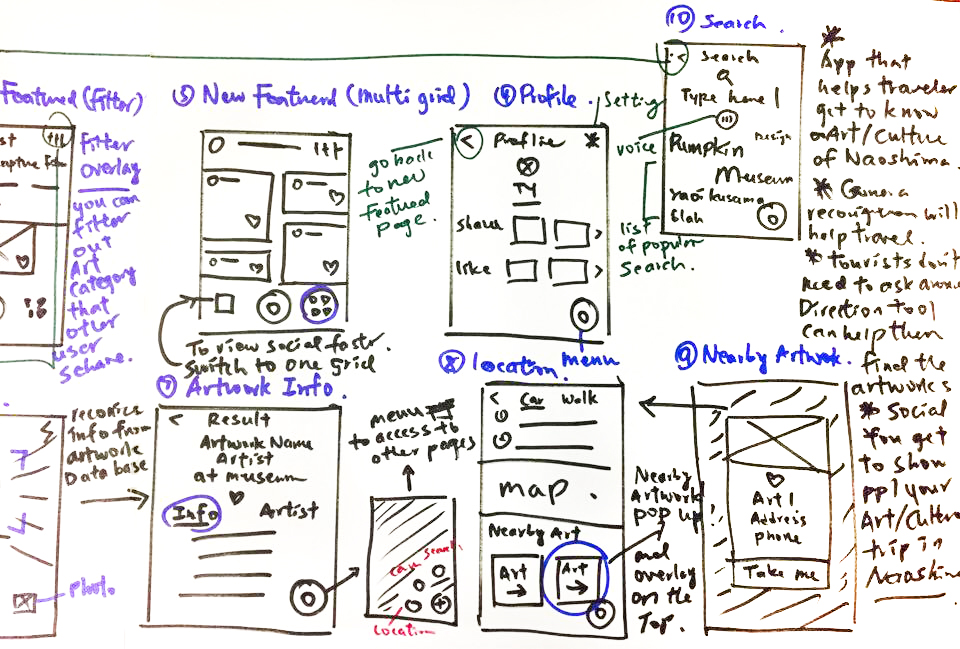 Featured (Filter)
Filter
overlay
you can
filter
out
Art
category
that
other
user
schare.
5 New Featured (multi grid)
To view social faster.
switch to one grid
go back
to new
Featured
page.
6 Profile.
Setting
< Proflie *
TY
Share
like
menu
10 Search.
< Search
Type here |
voice
Pumpkin
Design
Museum
yaoi kusama
Blah
list
of popular
Search.
* App that
helps traveler
get to know
Art/Culture
of Naoshima.
* Camera
recognition will
help travel.
* Tourists don't
need to ask
Direction tool
can help them
find the
artworks
* Social
You get
to show
ppl your
Art/Culture
trip in
Naoshima
photo
info from
artwork
Data base
7 Artwork Info.
< Result
Artwork Name
Artist
at museum
Info
Artist
menu
to access to
other pages
cam
Search
location
8 location
< Car Walk
map.
Nearby Art
Art
Art
Nearby
Artwork
pop up!
and
overlay
on the
Top.
9 Nearby Artwork.
Art 1
Address
phone
Take me